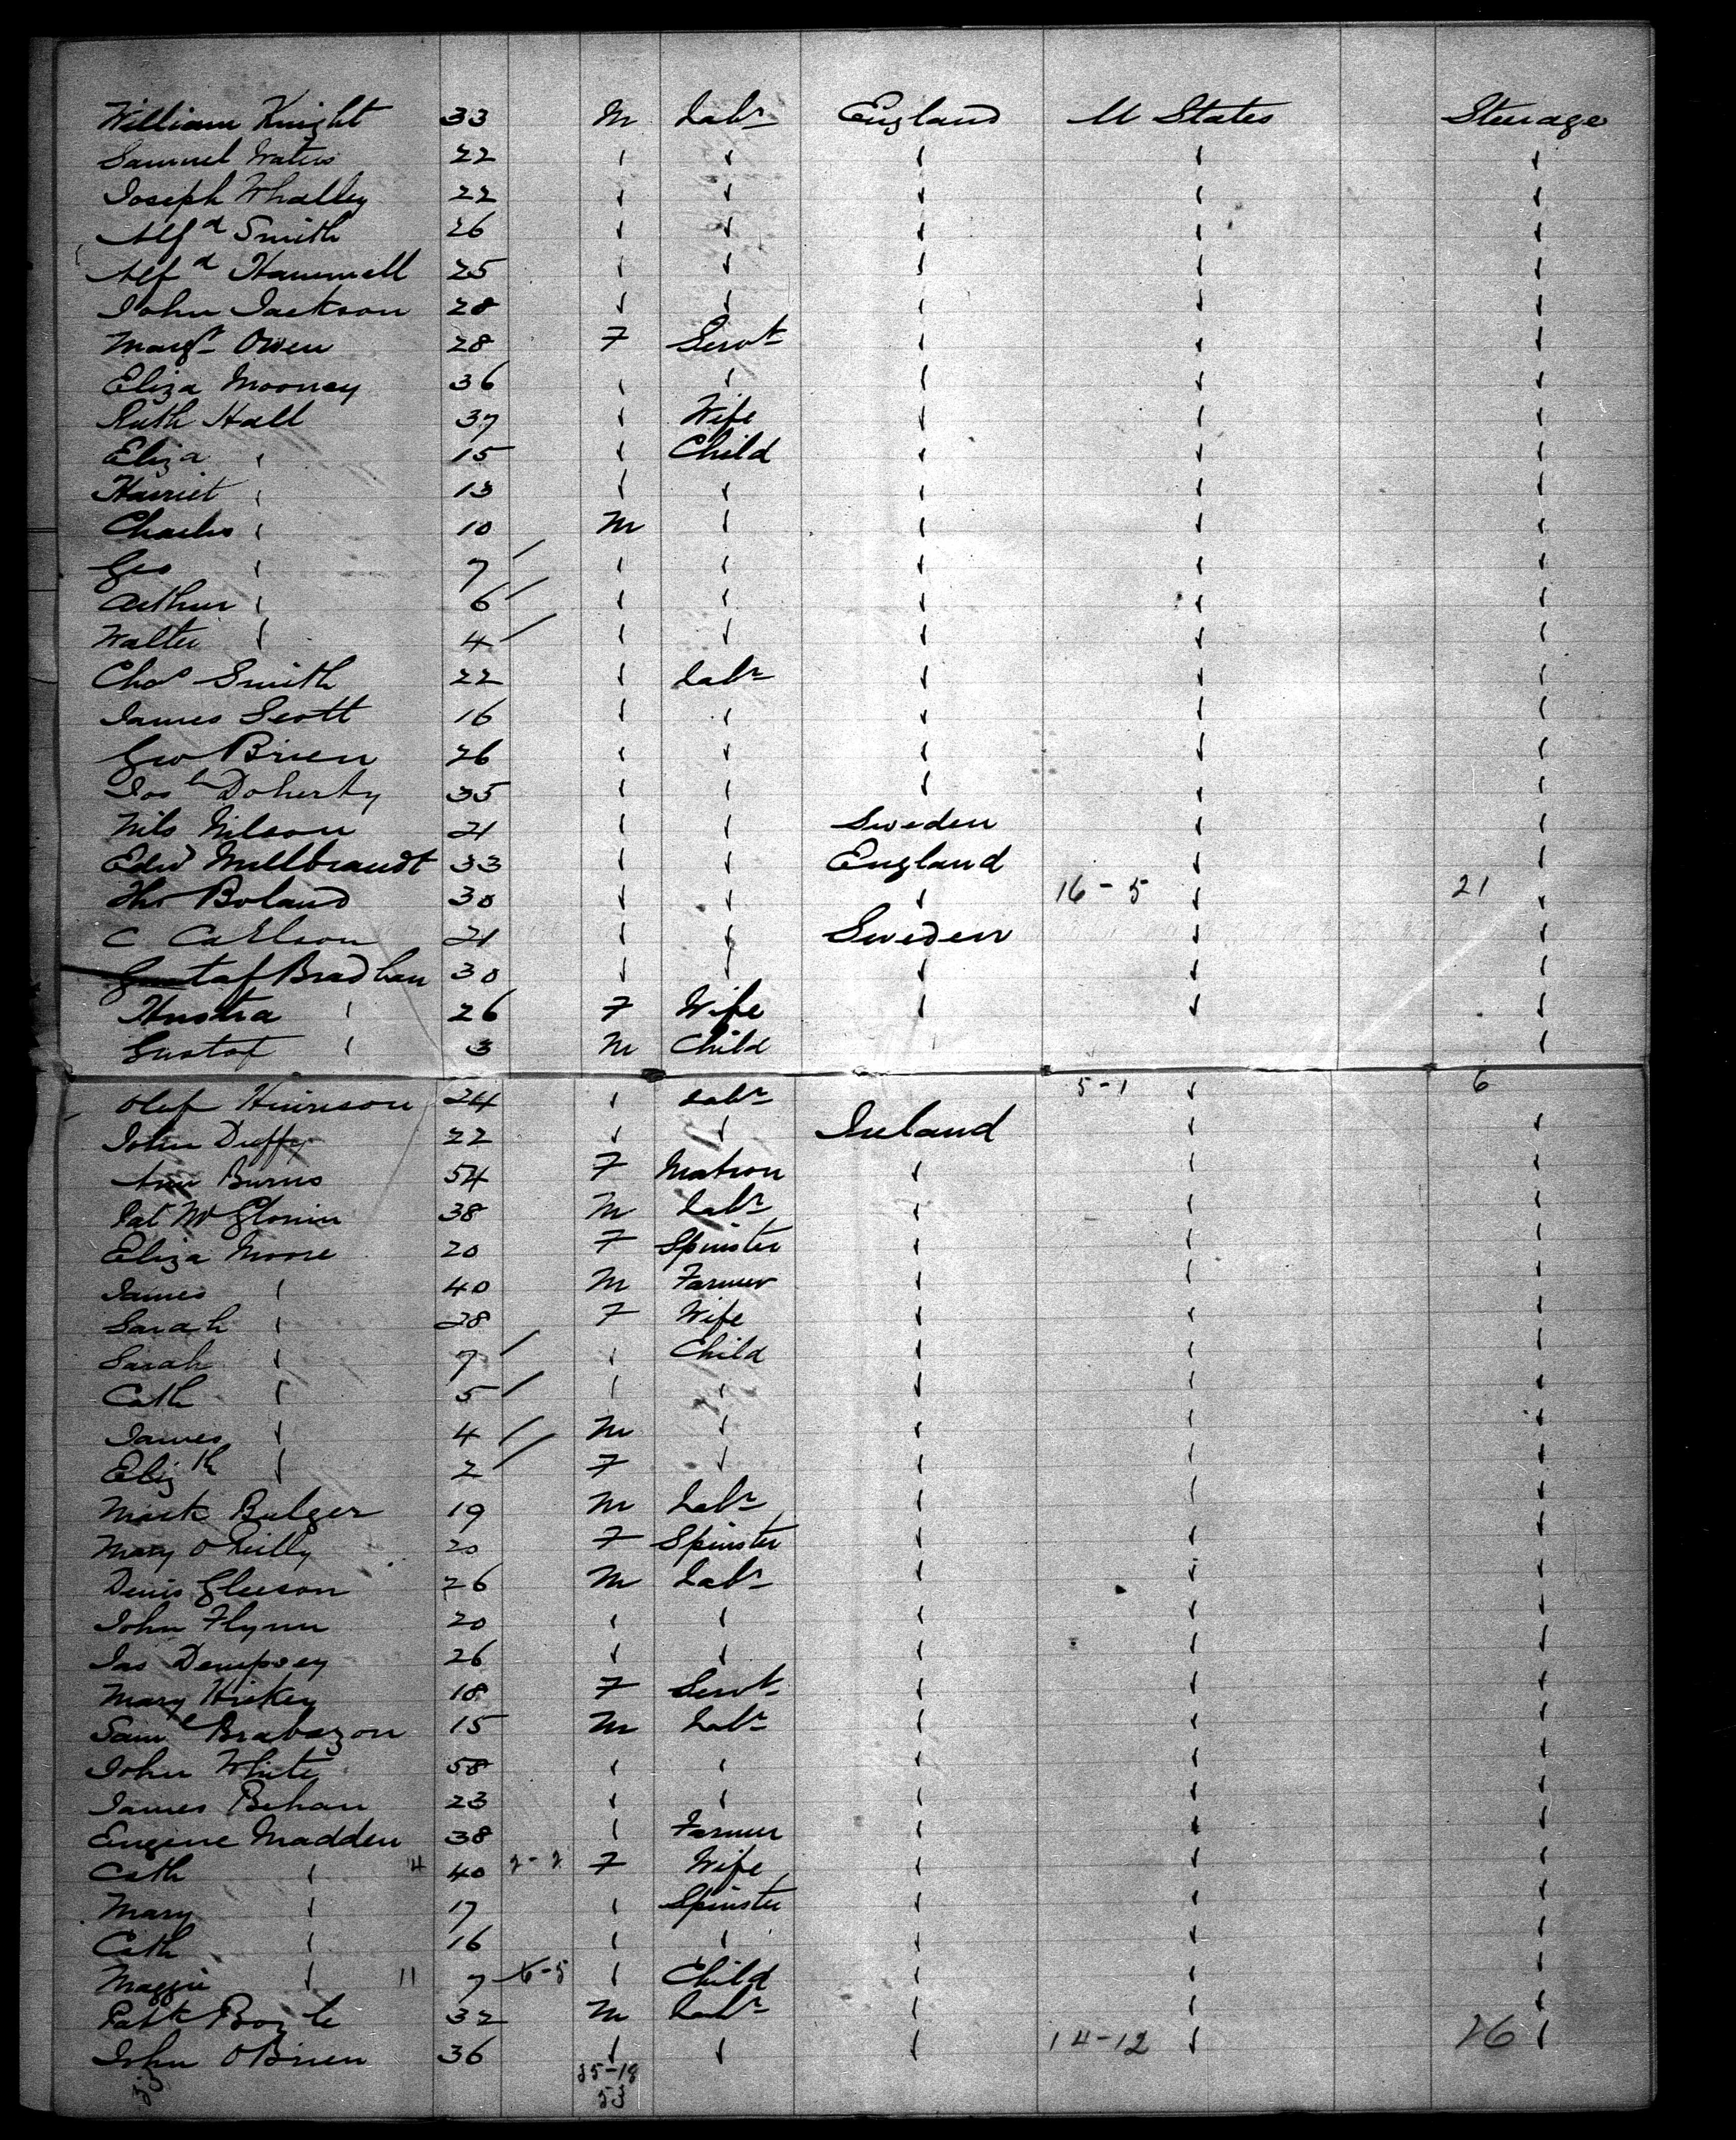 William Knight 33 M Labr England U States Steerage
Samuel Waters 22 " " " " "
Joseph Whalley 22 " " " " "
Alfd Smith 26 " " " " "
Alfd Hammell 25 " " " " "
John Jackson 28 " " " " "
Margt Owen 28 F Servt " " "
Eliza Mooney 36 " " " " "
Ruth Hall 37 " Wife " " "
Eliza " 15 " Child " " "
Harriet " 13 " " " " "
Charles " 10 M " " " "
Geo " 7 / " " " " "
Arthur " 6 / " " " " "
Walter " 4 / " " " " "
Chas Smith 22 " Labr " " "
James Scott 16 " " " " "
Geo Brien 26 " " " " "
Josh Doherty 35 " " " " "
Nils Nilson 21 " " Sweden " "
Edwd Mellbrandt 33 " " England " "
Thos Boland 30 " " " 16-5 " 21 "
C Carlson 21 " " Sweden " "
Gustaf Bradhan 30 " " " " "
" 26 F Wife " " "
Gustaf " 3 M Child " "
Olef 24 " Labr 5-1 " 6
John Duffy 22 " " Ireland " "
Ann Burns 54 F Matron " " "
Pat McGlonin 38 M Labr " " "
Eliza Moore 20 F Spinster " " "
James " 40 M Farmer " " "
Sarah " 28 F Wife " " "
Sarah " 7 / " Child " " "
Cath " 5 / " " " " "
James " 4 / M " " " "
Elizth " 2 / F " " " "
Mark Bulger 19 M Labr " " "
Mary O Reilly 20 F Spinster " " "
Denis Gleeson 26 M Labr " " "
John Flynn 20 " " " " "
Jas Dempsey 26 " " " " "
Mary Hickey 18 F Servt " " "
Saml Brabazon 15 M Labr " " "
John White 58 " " " " "
James Behan 23 " " " " "
Eugene Madden 38 " Farmer " " "
Cath " 14 40 2-2 F Wife " " "
Mary " 17 " Spinster " " "
Cath " 16 " " " " "
Maggie " 11 7 6-5 " Child " " "
Patk Boyle 32 M Labr " " "
John OBrien 36 " " " 14-12 " 26 "
35-18
53